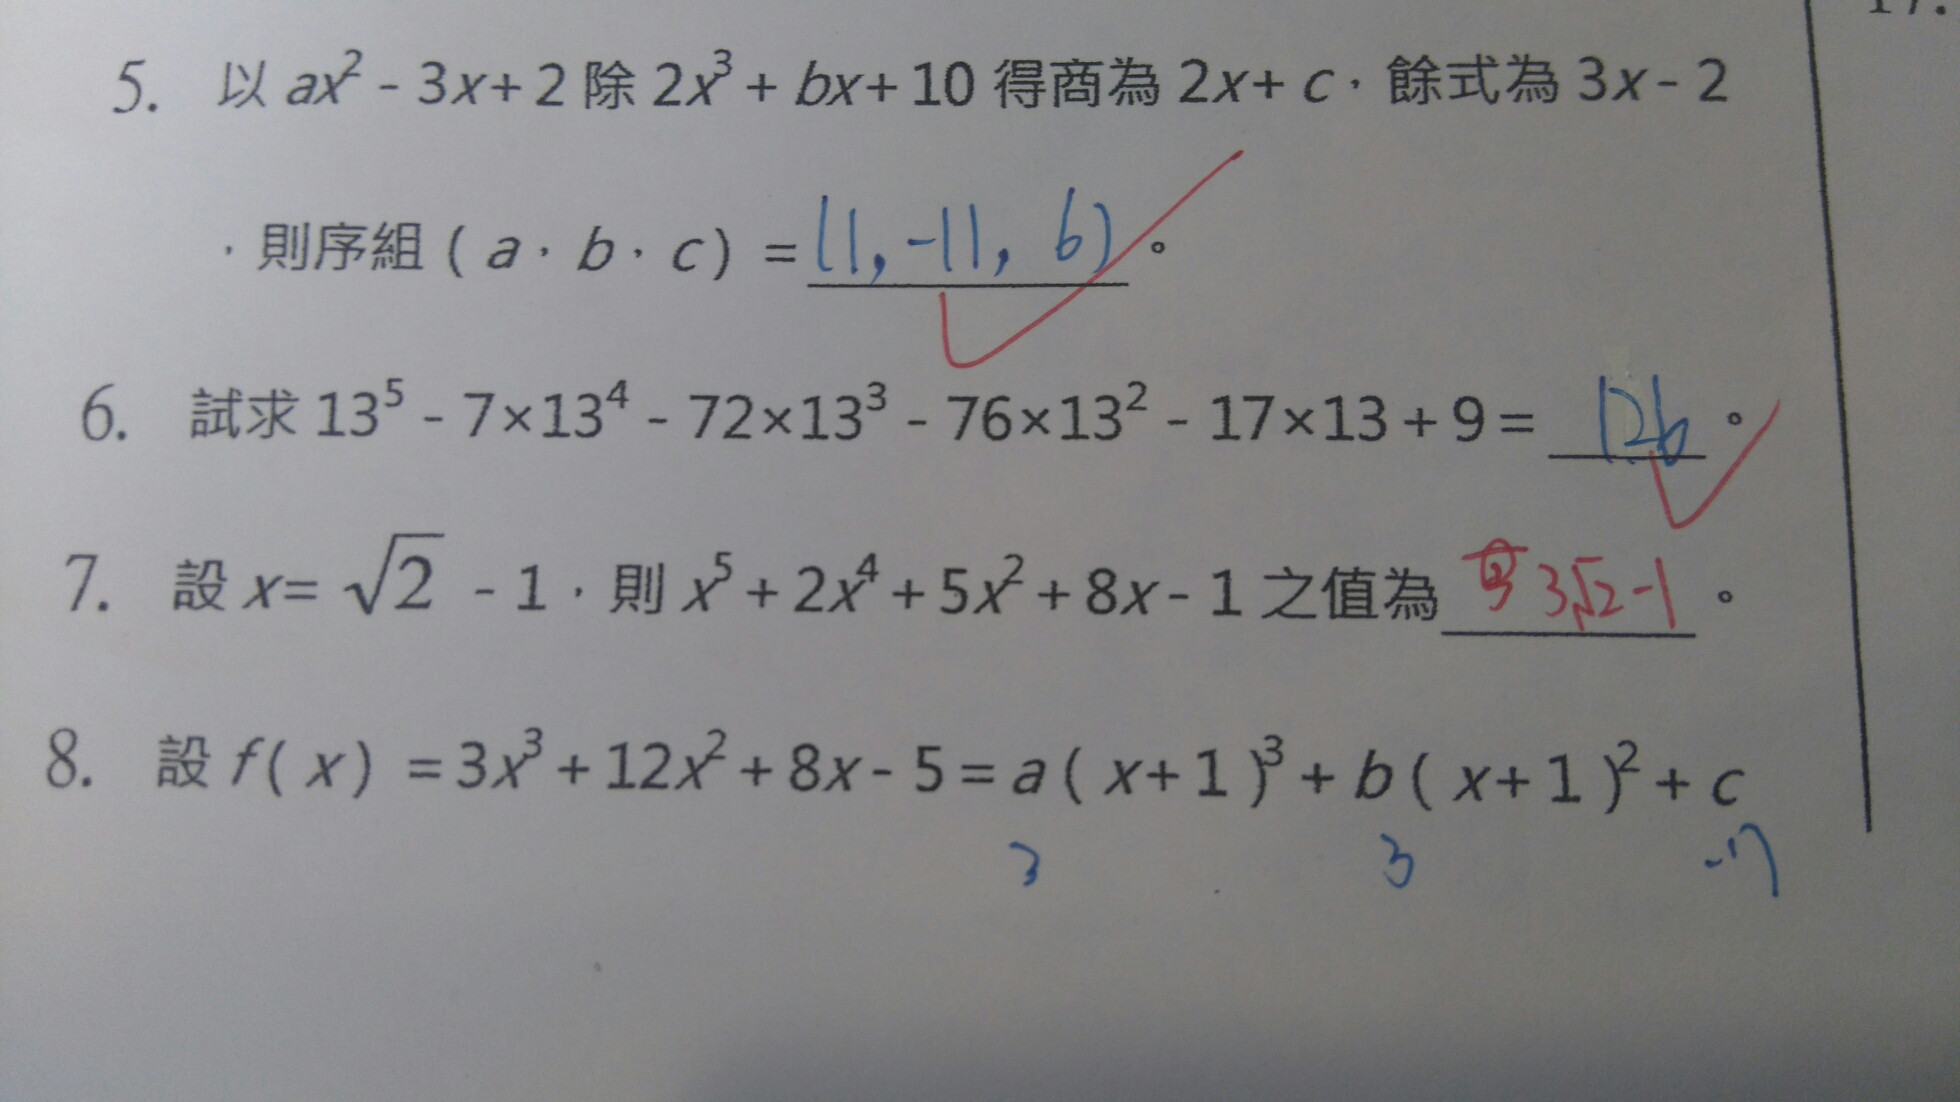 17.
5. 以 ax² - 3x+ 2 除 2x³ + bx+ 10 得商為 2x+ c，餘式為 3x- 2
，則序組 ( a，b，c ) = (1, -11, 6) 。
6. 試求 13⁵ - 7×13⁴ - 72×13³ - 76×13² - 17×13 + 9 = 126 。
7. 設 x= √2 - 1，則 x⁵ + 2x⁴ + 5x² + 8x- 1 之值為 3√2-1 。
8. 設 f( x ) = 3x³ + 12x² + 8x- 5 = a ( x+ 1 )³ + b ( x+ 1 )² + c
3 3 -17